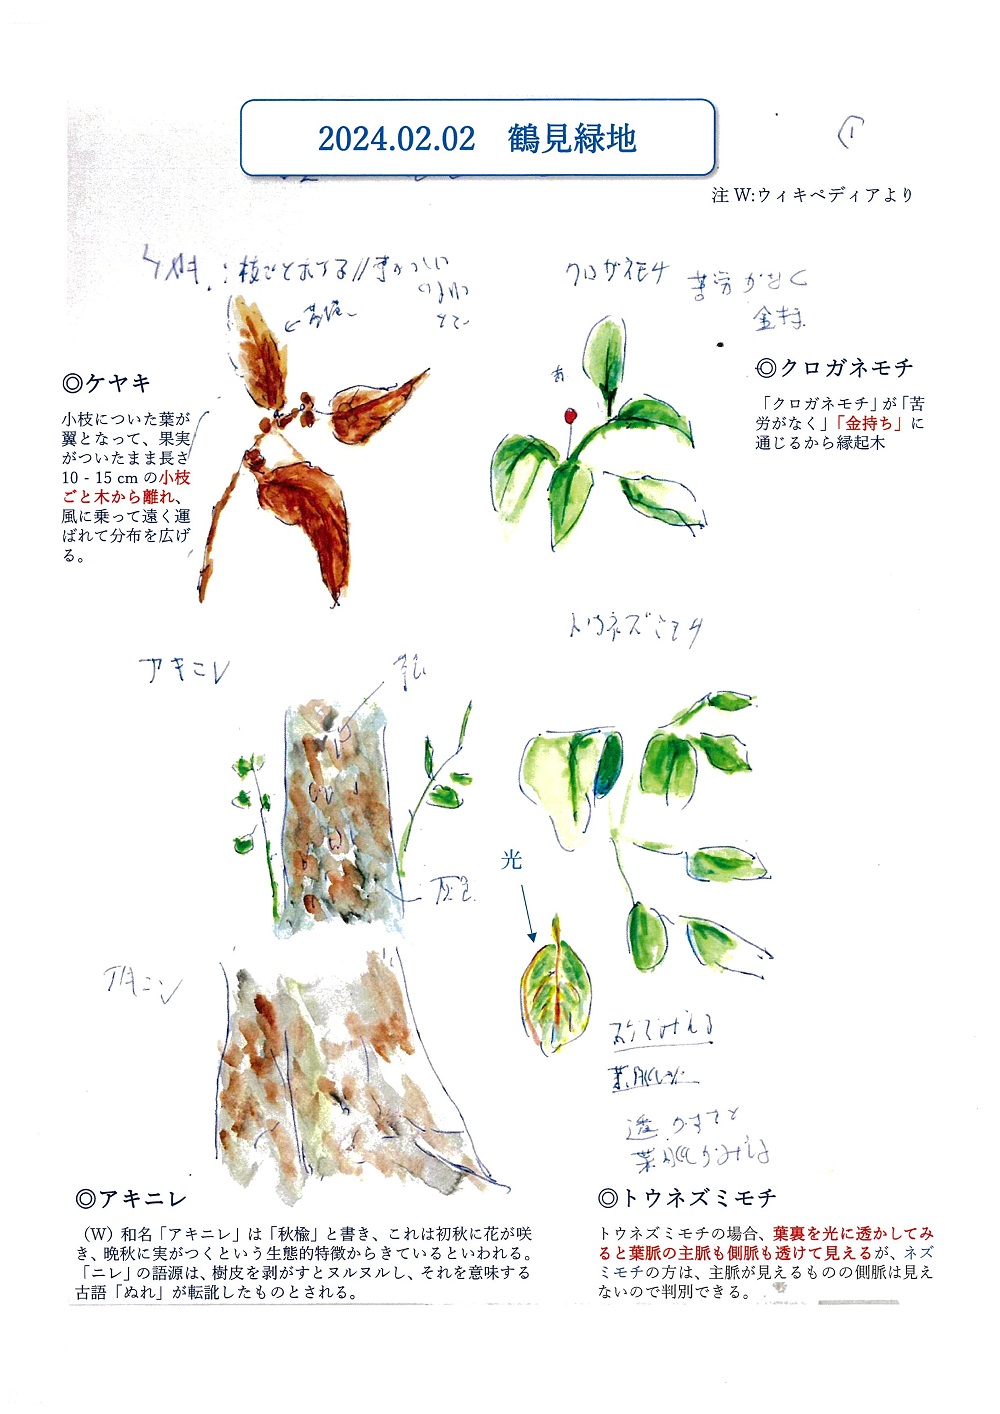 2024.02.02　鶴見緑地
注 W:ウィキペディアより
ケヤキ
クロガネモチ
苦労がなく
金持
◎ケヤキ
小枝についた葉が
翼となって、果実
がついたまま長さ
10 - 15 cm の小枝
ごと木から離れ、
風に乗って遠く運
ばれて分布を広げ
る。
赤
◎クロガネモチ
「クロガネモチ」が「苦
労がなく」「金持ち」に
通じるから縁起木
アキニレ
トウネズミモチ
灰色
光
アキニレ
葉脈
透かすと
葉脈がみえる
◎アキニレ
（W）和名「アキニレ」は「秋楡」と書き、これは初秋に花が咲
き、晩秋に実がつくという生態的特徴からきているといわれる。
「ニレ」の語源は、樹皮を剥がすとヌルヌルし、それを意味する
古語「ぬれ」が転訛したものとされる。
◎トウネズミモチ
トウネズミモチの場合、葉裏を光に透かしてみ
ると葉脈の主脈も側脈も透けて見えるが、ネズ
ミモチの方は、主脈が見えるものの側脈は見え
ないので判別できる。